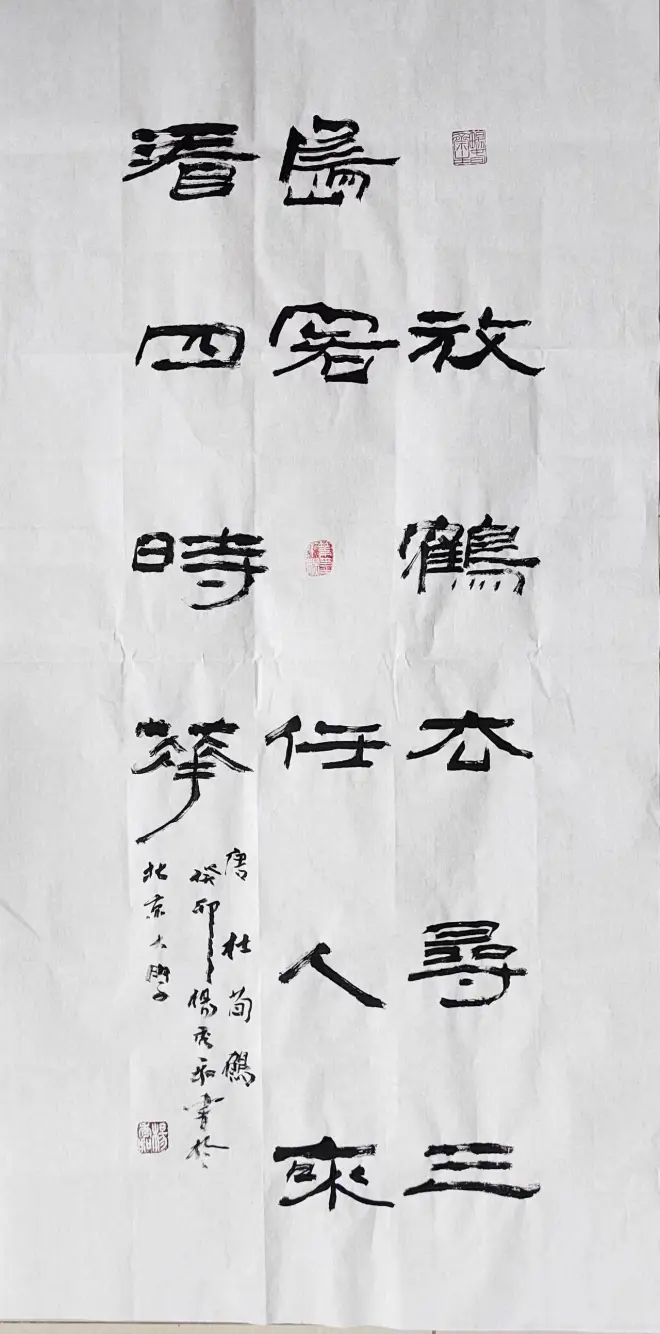 放鶴去尋三
島客任人來
看四時華
唐杜荀鶴
癸卯楊書於
北京大學